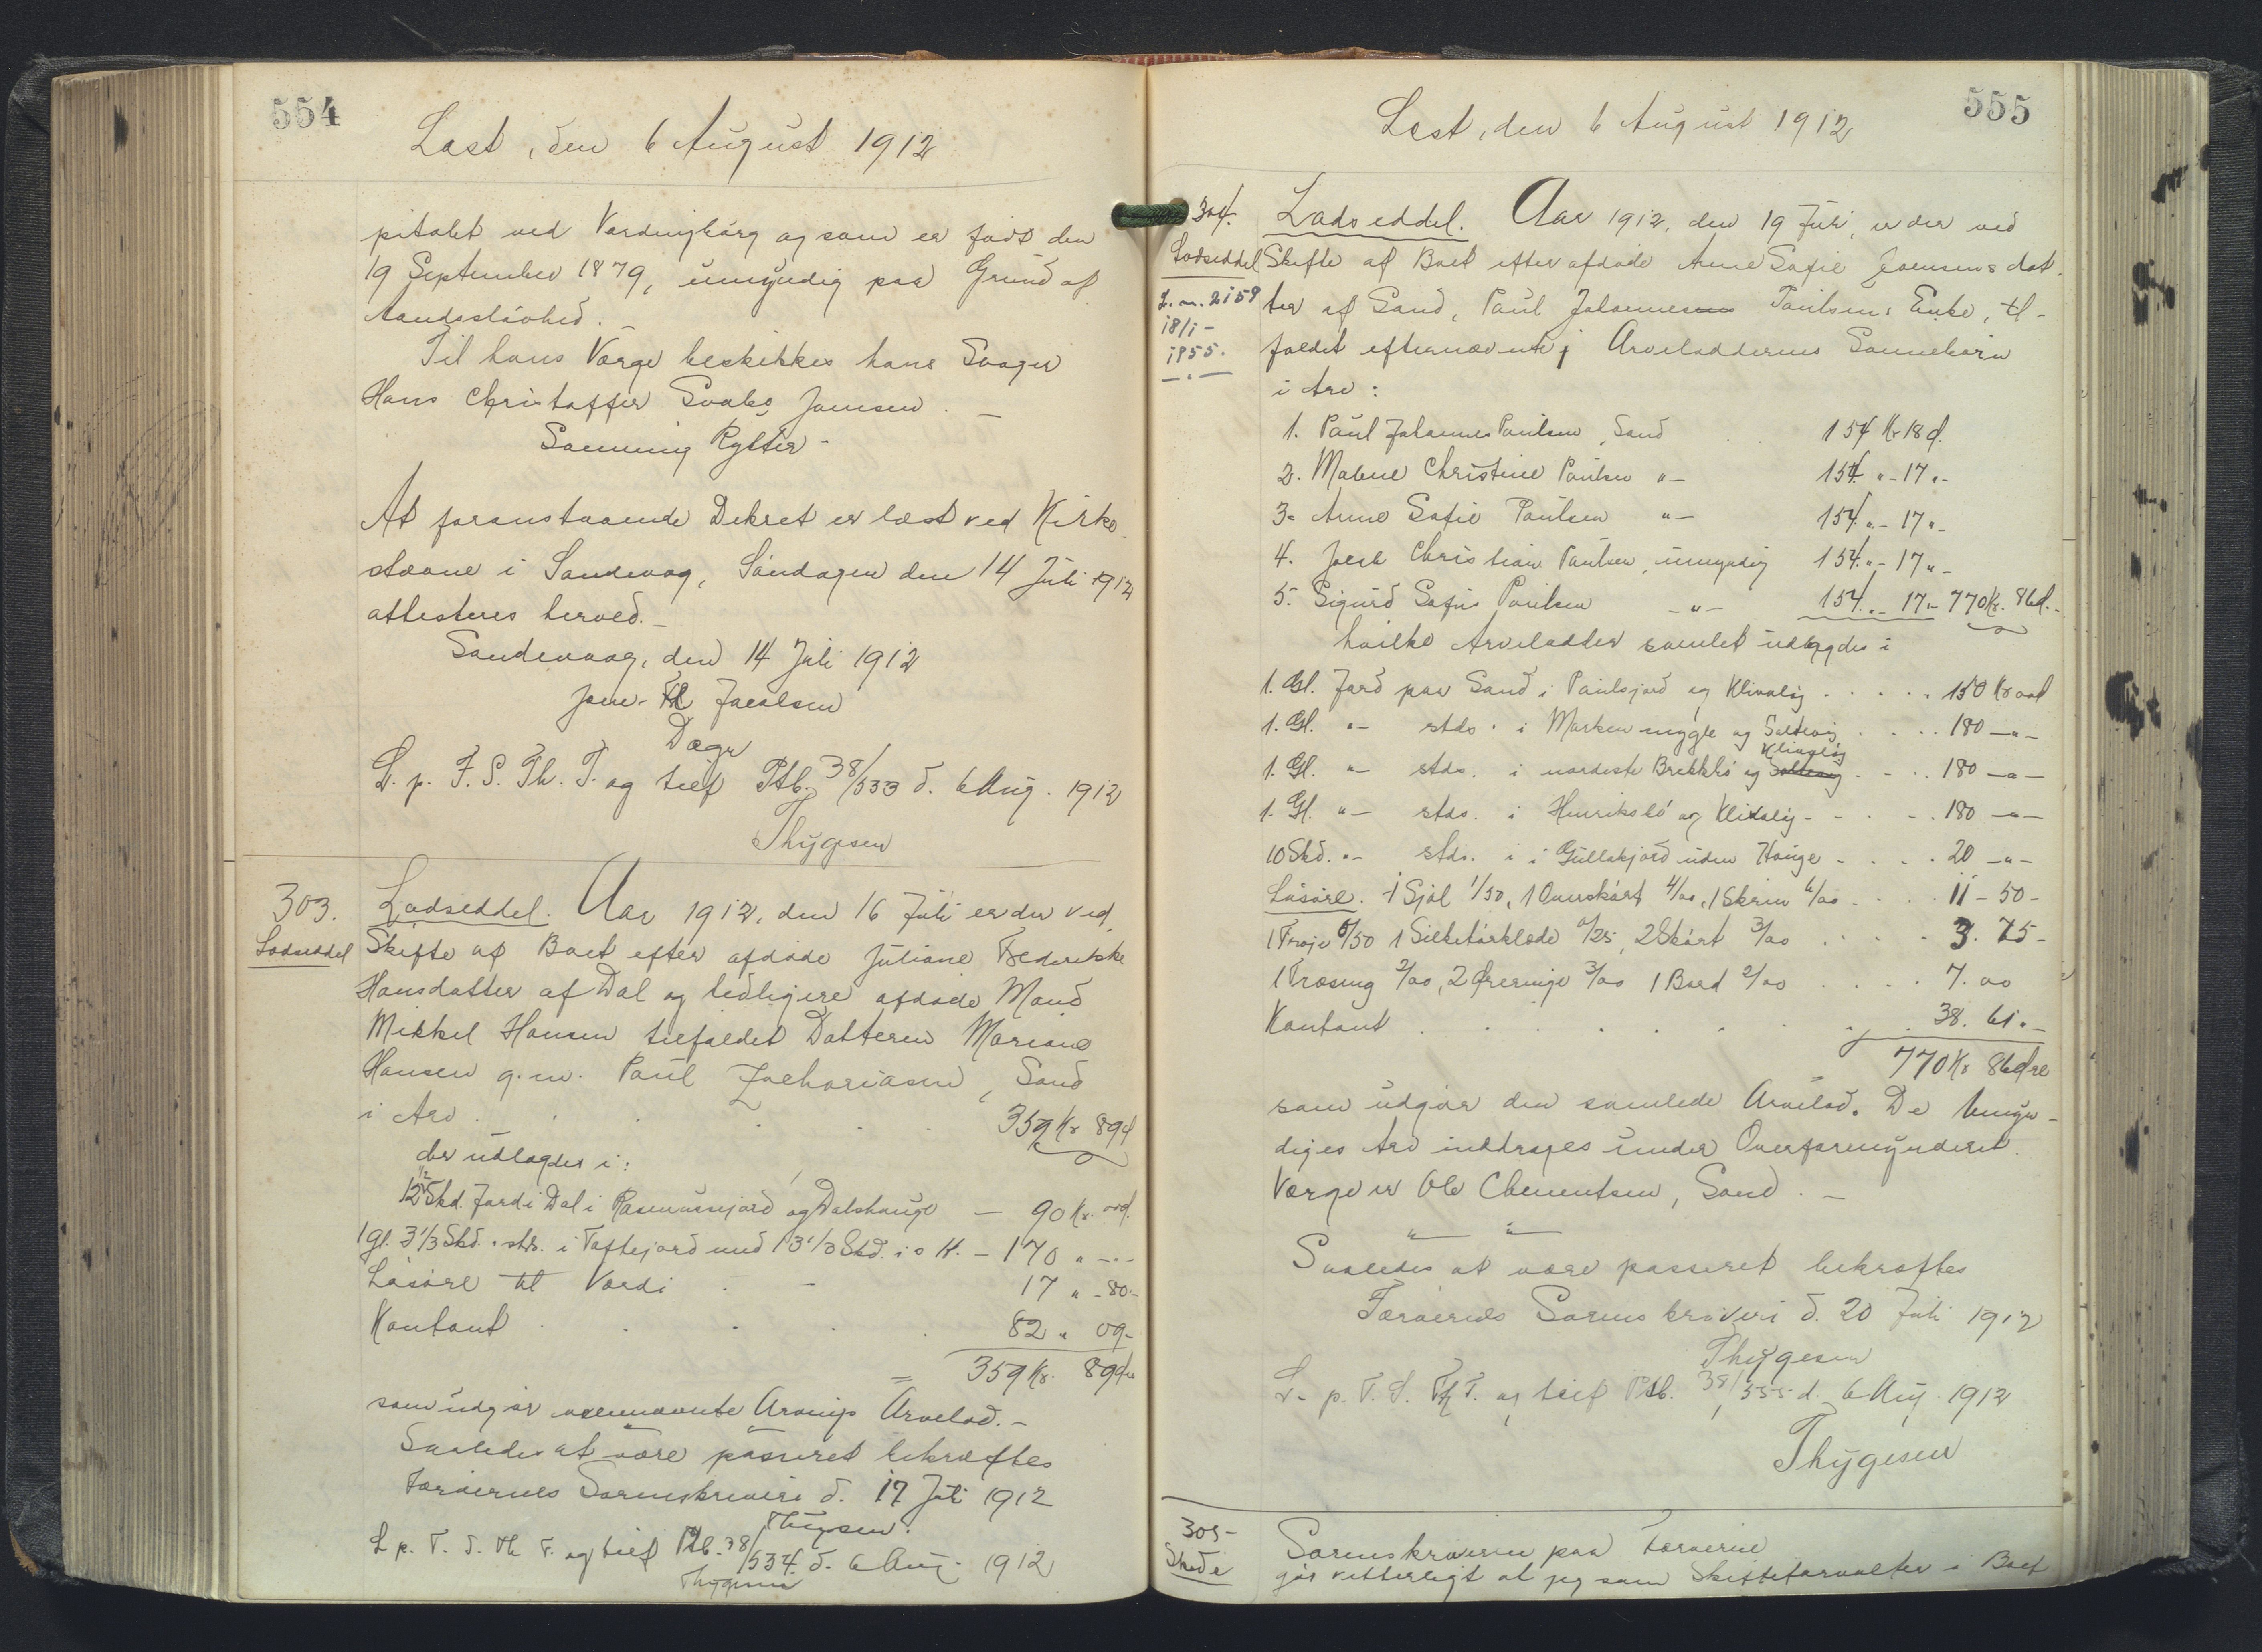 554
Læst, den 6 August 1912
pitalet ved Vordingborg og som er født den
19 September 1879, umyndig paa Grund af
Aandssløvhed. —
Til hans Værge beskikkes hans Svoger
Hans Christoffer Svabo Joensen. —
Rytter -
At foranstaaende Dekret er læst ved Kirke-
stævne i Sandevaag, Søndagen den 14 Juli 1912
attesteres herved. —
Sandevaag, den 14 Juli 1912
Jacobsen
L. p. F. S. Th. T. og tilf Ptb. 38/533 d. 6 Aug. 1912
Thygesen
303.
Lodseddel
Lodseddel. Aar 1912, den 16 Juli er der ved
Skifte af Boet efter afdøde Juliane Frederikke
Hansdatter af Dal og tidligere afdøde Mand
Mikkel Hansen tilfaldet Datteren Mariane
Hansen g. m. Paul Zachariasen, Sand
i Arv . . . . . 359 Kr 89 Ø
der udlagdes i:
12 1/2 Skd. Jord i Dal i Rasmussejord og Dalshauge — 90 Kr. 00 Ø.
1 gl. 3 1/3 Skd. " stds. i Toftejord med 13 1/3 Skd. i o K. — 170 " - "-
Løsøre til Værdi . - 17 " - 80 -
Kontant . . . . . 82 " 09 -
359 Kr. 89 Øre
som udgør ovennævnte Arvings Arvelod. —
Saaledes at være passeret bekræftes
Færøernes Sorenskriveri d. 17 Juli 1912
Thygesen.
L. p. F. S. Th. T. og tilf Ptb. 38/534. d. 6 Aug. 1912
Thygesen
555
Læst, den 6 August 1912
304.
Lodseddel
L. n. 2159
18/1 -
1955.
Lodseddel. Aar 1912, den 19 Juli, er der ved
Skifte af Boet efter afdøde Anne Sofie Joensens dat-
ter af Sand, Paul Johannes Poulsens Enke, til-
faldet efternævnte Arveladdernes Sønnebørn
i Arv:
1. Paul Johannes Poulsen, Sand . . 154 Kr 18 Ø.
2. Malene Christine Poulsen " — 154 " - 17 " -
3. Anne Sofie Poulsen " — 154 " - 17 " -
4. Joen Christian Poulsen, umyndig 154 " - 17 " -
5. Sigurd Sofus Poulsen - " - 154 " - 17 " - 770 Kr. 86 Ø. -
hvilke Arvelodder samlet udlagdes i
1. Gl. Jord paa Sand i Paulsjord og Klivalöj . . . . . 150 Kr 00 Ø
1. Gl. " - stds. i Marken mygle og Saltvig . . . . 180 — " —
1. Gl. " - stds. i nordeste Brekkhö og Klivalöj . . . 180 — " —
1. Gl. " — stds. i Henrikshö og Klivalöj - - . - . 180 — " —
10 Skd. " - stds. i i Gullakjord uden Hauge - . . . 20 — " -
Løsøre. 1 Sjal 1/50, 1 Overskørt 4/00, 1 Skrin 6/00 . . . . 11 - 50 -
1 Trøje 0/50 1 Silketørklæde 0/25, 2 Skørt 3/00 . . . . 3. 75 -
1 Træseng 2/00, 2 Øreringe 3/00 1 Bord 2/00 . . . . 7. 00
Kontant . . . . . . 38. 61. -
770 Kr 86 Øre
som udgør den samlede Arvelod. De Umyn-
diges Arv inddrages under Overformynderiet.
Værge er Ole Clementsen, Sand. —
" — " —
Saaledes at være passeret bekræftes
Færøernes Sorenskriveri d. 20 Juli 1912
Thygesen
L. p. F. S. Th T. og tilf Ptb. 38/555 d. 6 Aug. 1912
Thygesen
305 -
Skøde
Sorenskriveren paa Færøerne
gør vitterligt at jeg som Skifteforvalter i Boet